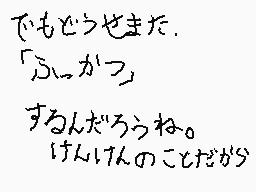 でもどうせまた.
「ふっかつ」
するんだろうね。
けんけんのことだから